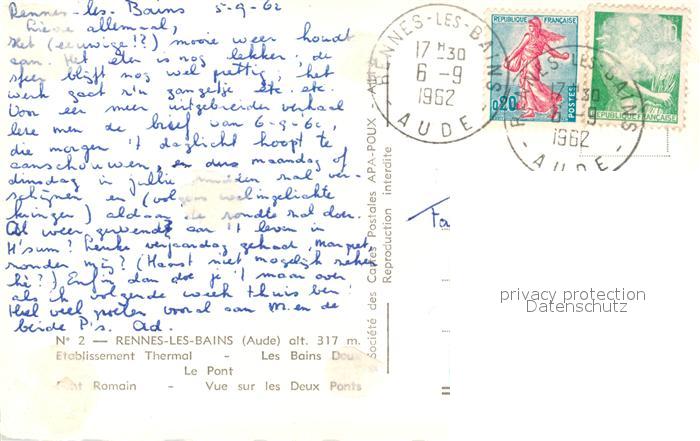 Rennes-les-Bains 5-9-62
Lieve allemaal,
Het (eeuwige!?) mooie weer houdt
aan. Het eten is nog lekker, de
sfeer blijft nog wel prettig, het
werk gaat z'n gangetje etc. etc.
Voor een meer uitgebreider verhaal
leze men de brief van 6-9-62,
die morgen 't daglicht hoopt te
aanschouwen, en dus maandag of
dinsdag in jullie midden zal ver-
schijnen en (volgens welingelichte
kringen) aldaar de ronde zal doen.
Al weer gewend aan 't leven in
H'sum? Leuke verjaardag gehad, Margreet,
zonder mij? (Haast niet mogelijk zeker
hè?) Enfin dan doe je 't maar over
als ik volgende week thuis ben!
Heel veel groeten vooral aan M. en de
beide P's. Ad.
N° 2 — RENNES-LES-BAINS (Aude) alt. 317 m.
Etablissement Thermal - Les Bains Doux
Le Pont
Romain - Vue sur les Deux Ponts
Société des Cartes Postales APA-POUX -
Reproduction interdite
RENNES-LES-BAINS
17 H 30
6 - 9
1962
- AUDE -
REPUBLIQUE FRANÇAISE
0,20
POSTES
RENNES-LES-BAINS
17 H 30
6 - 9
1962
- AUDE -
REPUBLIQUE FRANÇAISE
Fa
privacy protection
Datenschutz